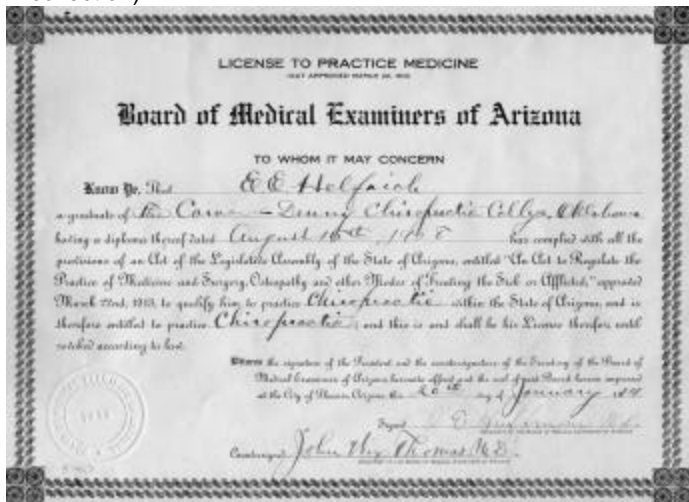 LICENSE TO PRACTICE MEDICINE
(ACT APPROVED MARCH 22, 1913)
Board of Medical Examiners of Arizona
TO WHOM IT MAY CONCERN
Know Ye, That E E
a graduate of The Chiropractic College, Oklahoma
having a diploma thereof dated August has complied with all the
provisions of an Act of the Legislative Assembly of the State of Arizona, entitled "An Act to Regulate the
Practice of Medicine and Surgery, Osteopathy and other Modes of Treating the Sick or Afflicted," approved
March 22nd, 1913, to qualify him to practice Chiropractic within the State of Arizona, and is
therefore entitled to practice Chiropractic, and this is and shall be his License therefor until
revoked according to law.
the signature of the President and the countersignature of the Secretary of the Board of
Medical Examiners of Arizona hereunto affixed and the seal of said Board hereon impressed
at the City of Phoenix, Arizona this 20th day of January
Signed M.D.
Countersigned John Wix Thomas M.D.